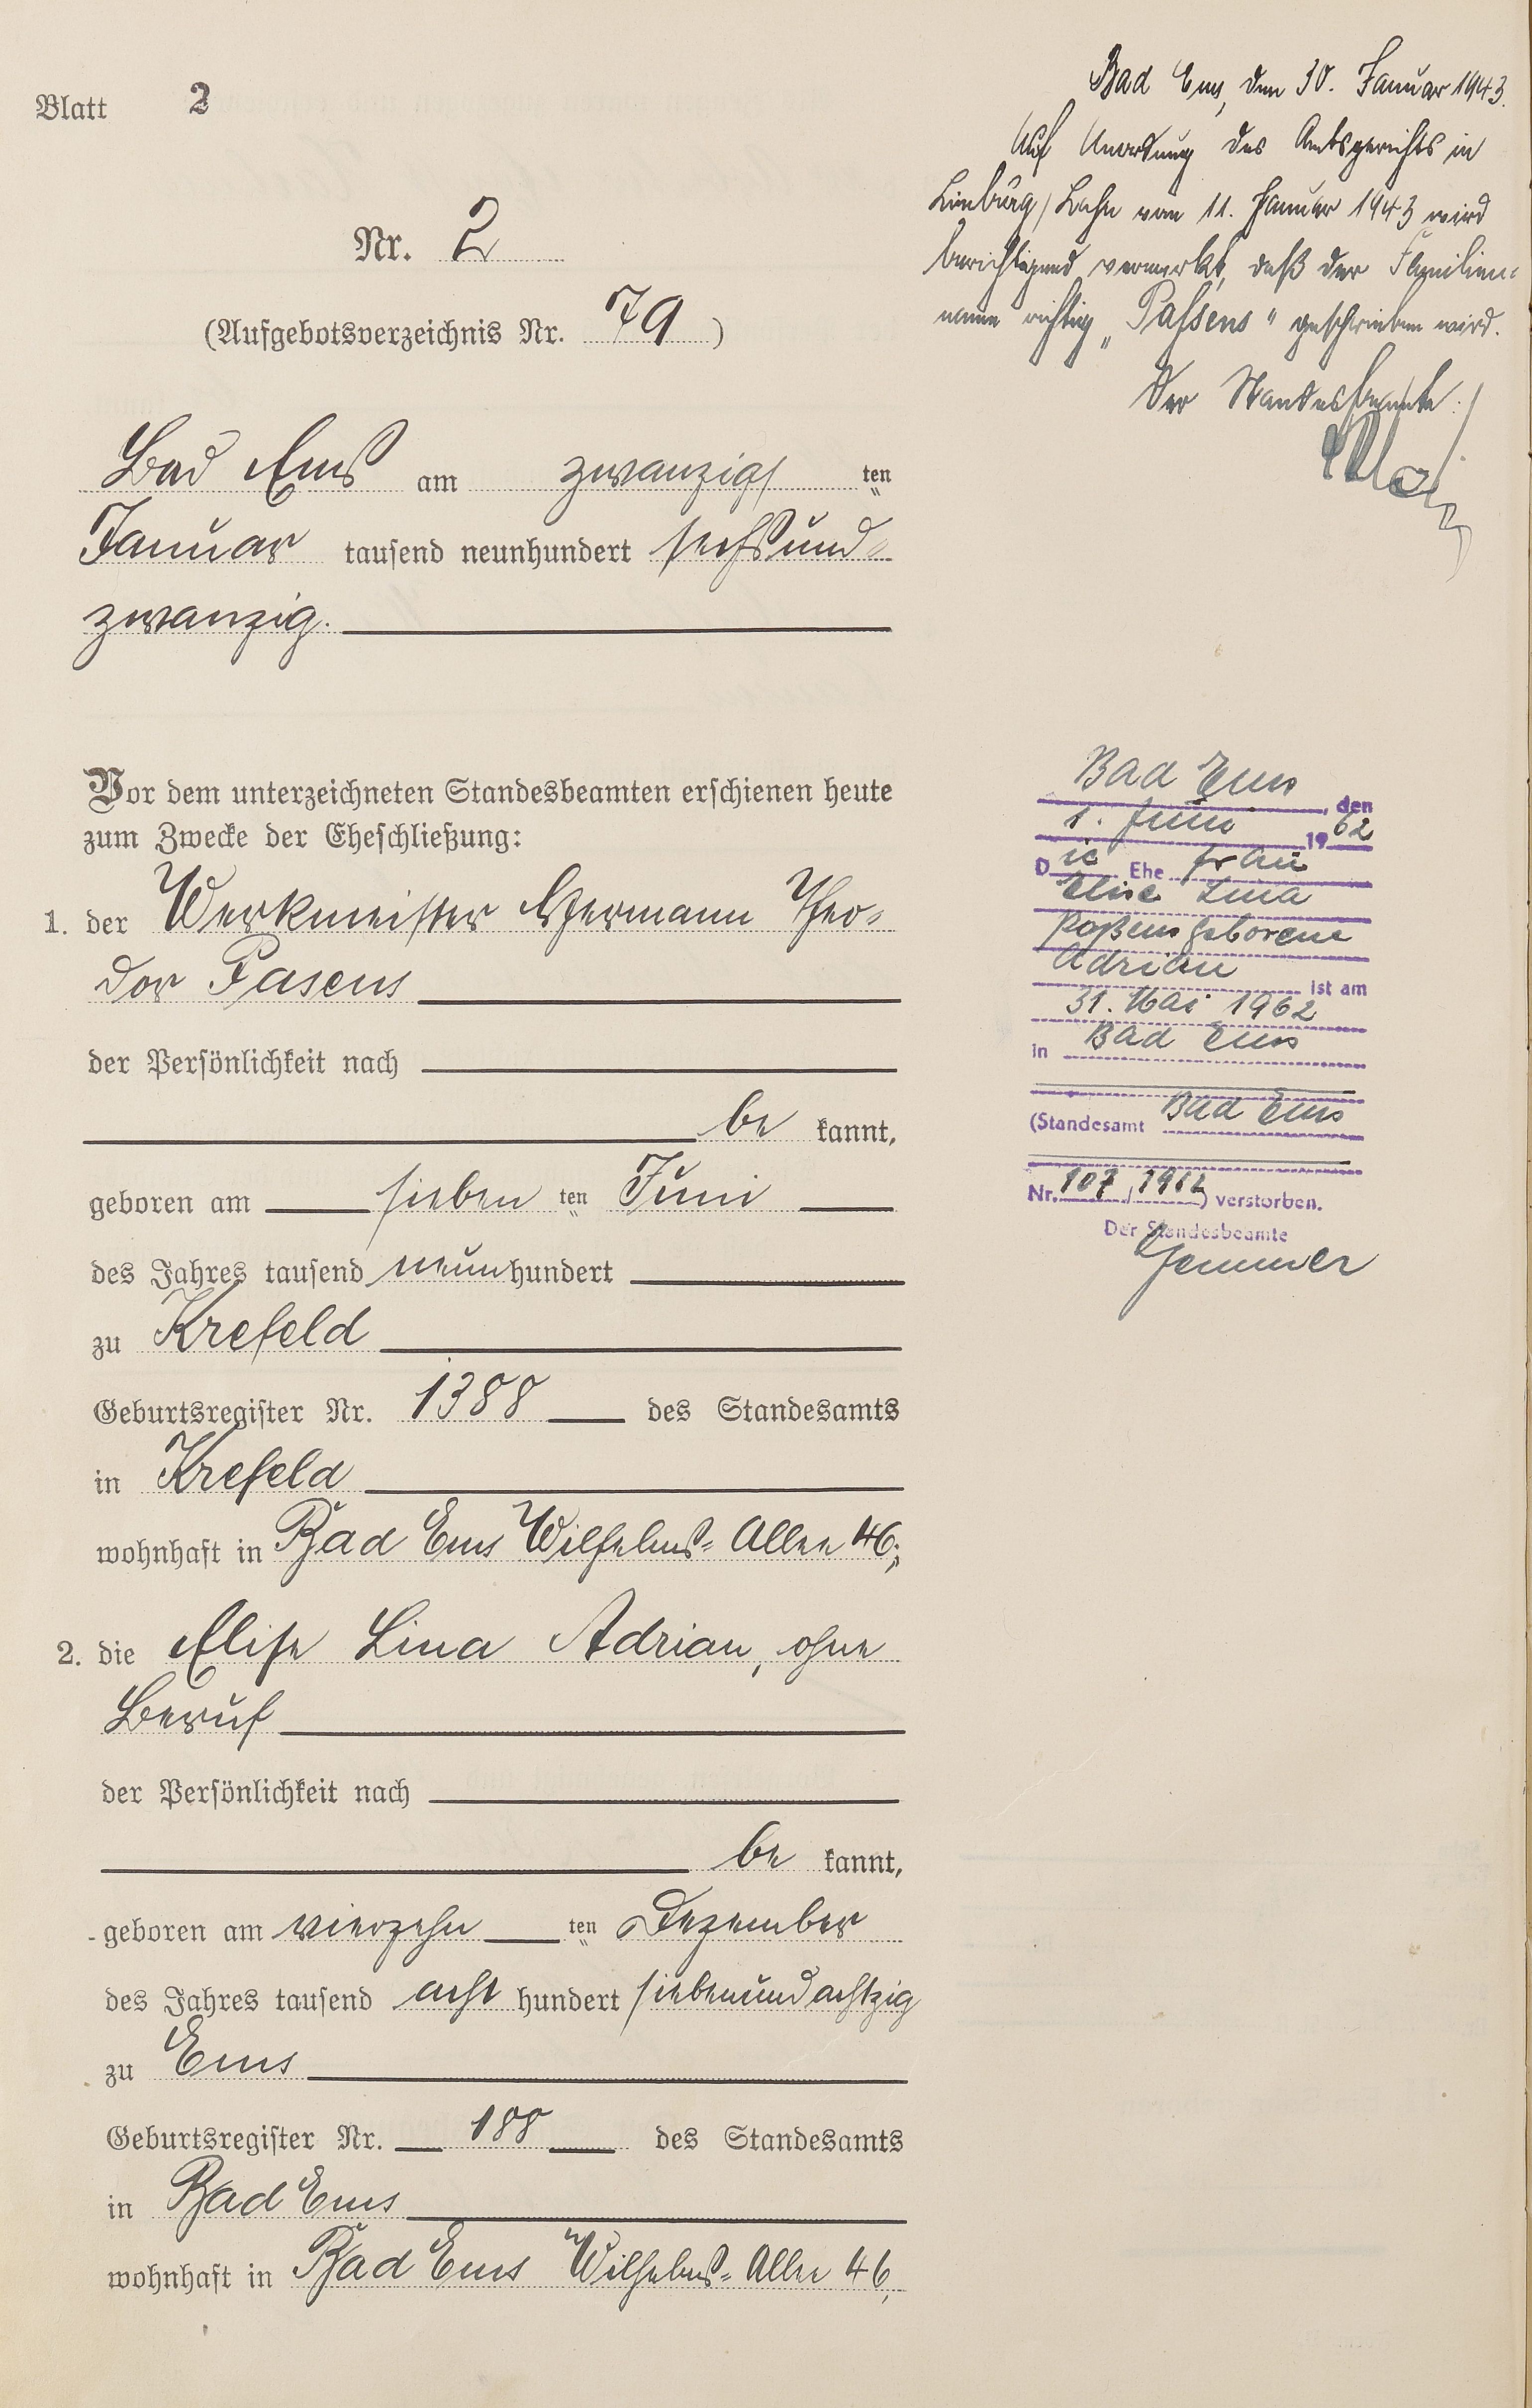 Blatt 2
Nr. 2
(Aufgebotsverzeichnis Nr. 79)
Bad Ems am zwanzigsten
Januar tausend neunhundert sechsund-
zwanzig.
Vor dem unterzeichneten Standesbeamten erschienen heute
zum Zwecke der Eheschließung:
1. der Werkmeister Hermann Theo-
dor Pasens
der Persönlichkeit nach
be kannt,
geboren am sieben ten Juni
des Jahres tausend neunhundert
zu Krefeld
Geburtsregister Nr. 1388 des Standesamts
in Krefeld
wohnhaft in Bad Ems Wilhelms-Allee 46;
2. die Elise Lina Adrian, ohne
Beruf
der Persönlichkeit nach
be kannt,
geboren am vierzehn ten Dezember
des Jahres tausend acht hundert siebenundachtzig
zu Ems
Geburtsregister Nr. 188 des Standesamts
in Bad Ems
wohnhaft in Bad Ems Wilhelms-Allee 46,
Bad Ems, den 30. Januar 1943.
Auf Anordnung des Amtsgerichts in
Limburg/Lahn vom 11. Januar 1943 wird
berichtigend vermerkt, daß der Familien-
name richtig „Passens" geschrieben wird.
Der Standesbeamte:
Bad Ems, den
1. Juni 1962
Die Ehefrau
Elise Lina
Paßens geborene
Adrian ist am
31. Mai 1962
in Bad Ems
(Standesamt Bad Ems
Nr. 107/1962) verstorben.
Der Standesbeamte